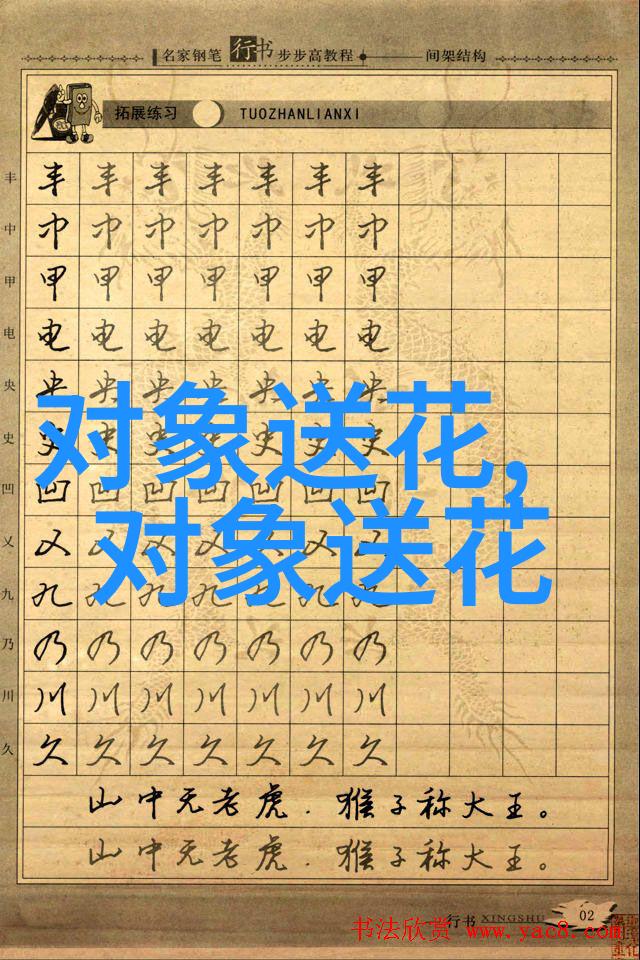 名家钢笔 行书 步步高教程 间架结构
拓展练习 TUOZHANLIANXI
丰 丰 丰 丰 丰 丰 丰 丰
中 中 中 中 中 中 中 中
甲 甲 甲 甲 甲 甲 甲 甲
电 电 电 电 电 电 电 电
央 央 央 央 央 央 央 央
对象送花,
史 史 史 史 史 史 史 史
凹 凹 凹 凹 凹 凹 凹 凹
对象送花
乂 乂 乂 乂 乂 乂 乂 乂
九 九 九 九 九 九 九 九
乃 乃 乃 乃 乃 乃 乃 乃
川 川 川 川 川 川 川 川
久 久 久 久 久 久 久 久
山中无老虎.猴子称大王。
山中无老虎.猴子称大王。
行书 XINGSHU 02
书法欣赏 www.yac8.com